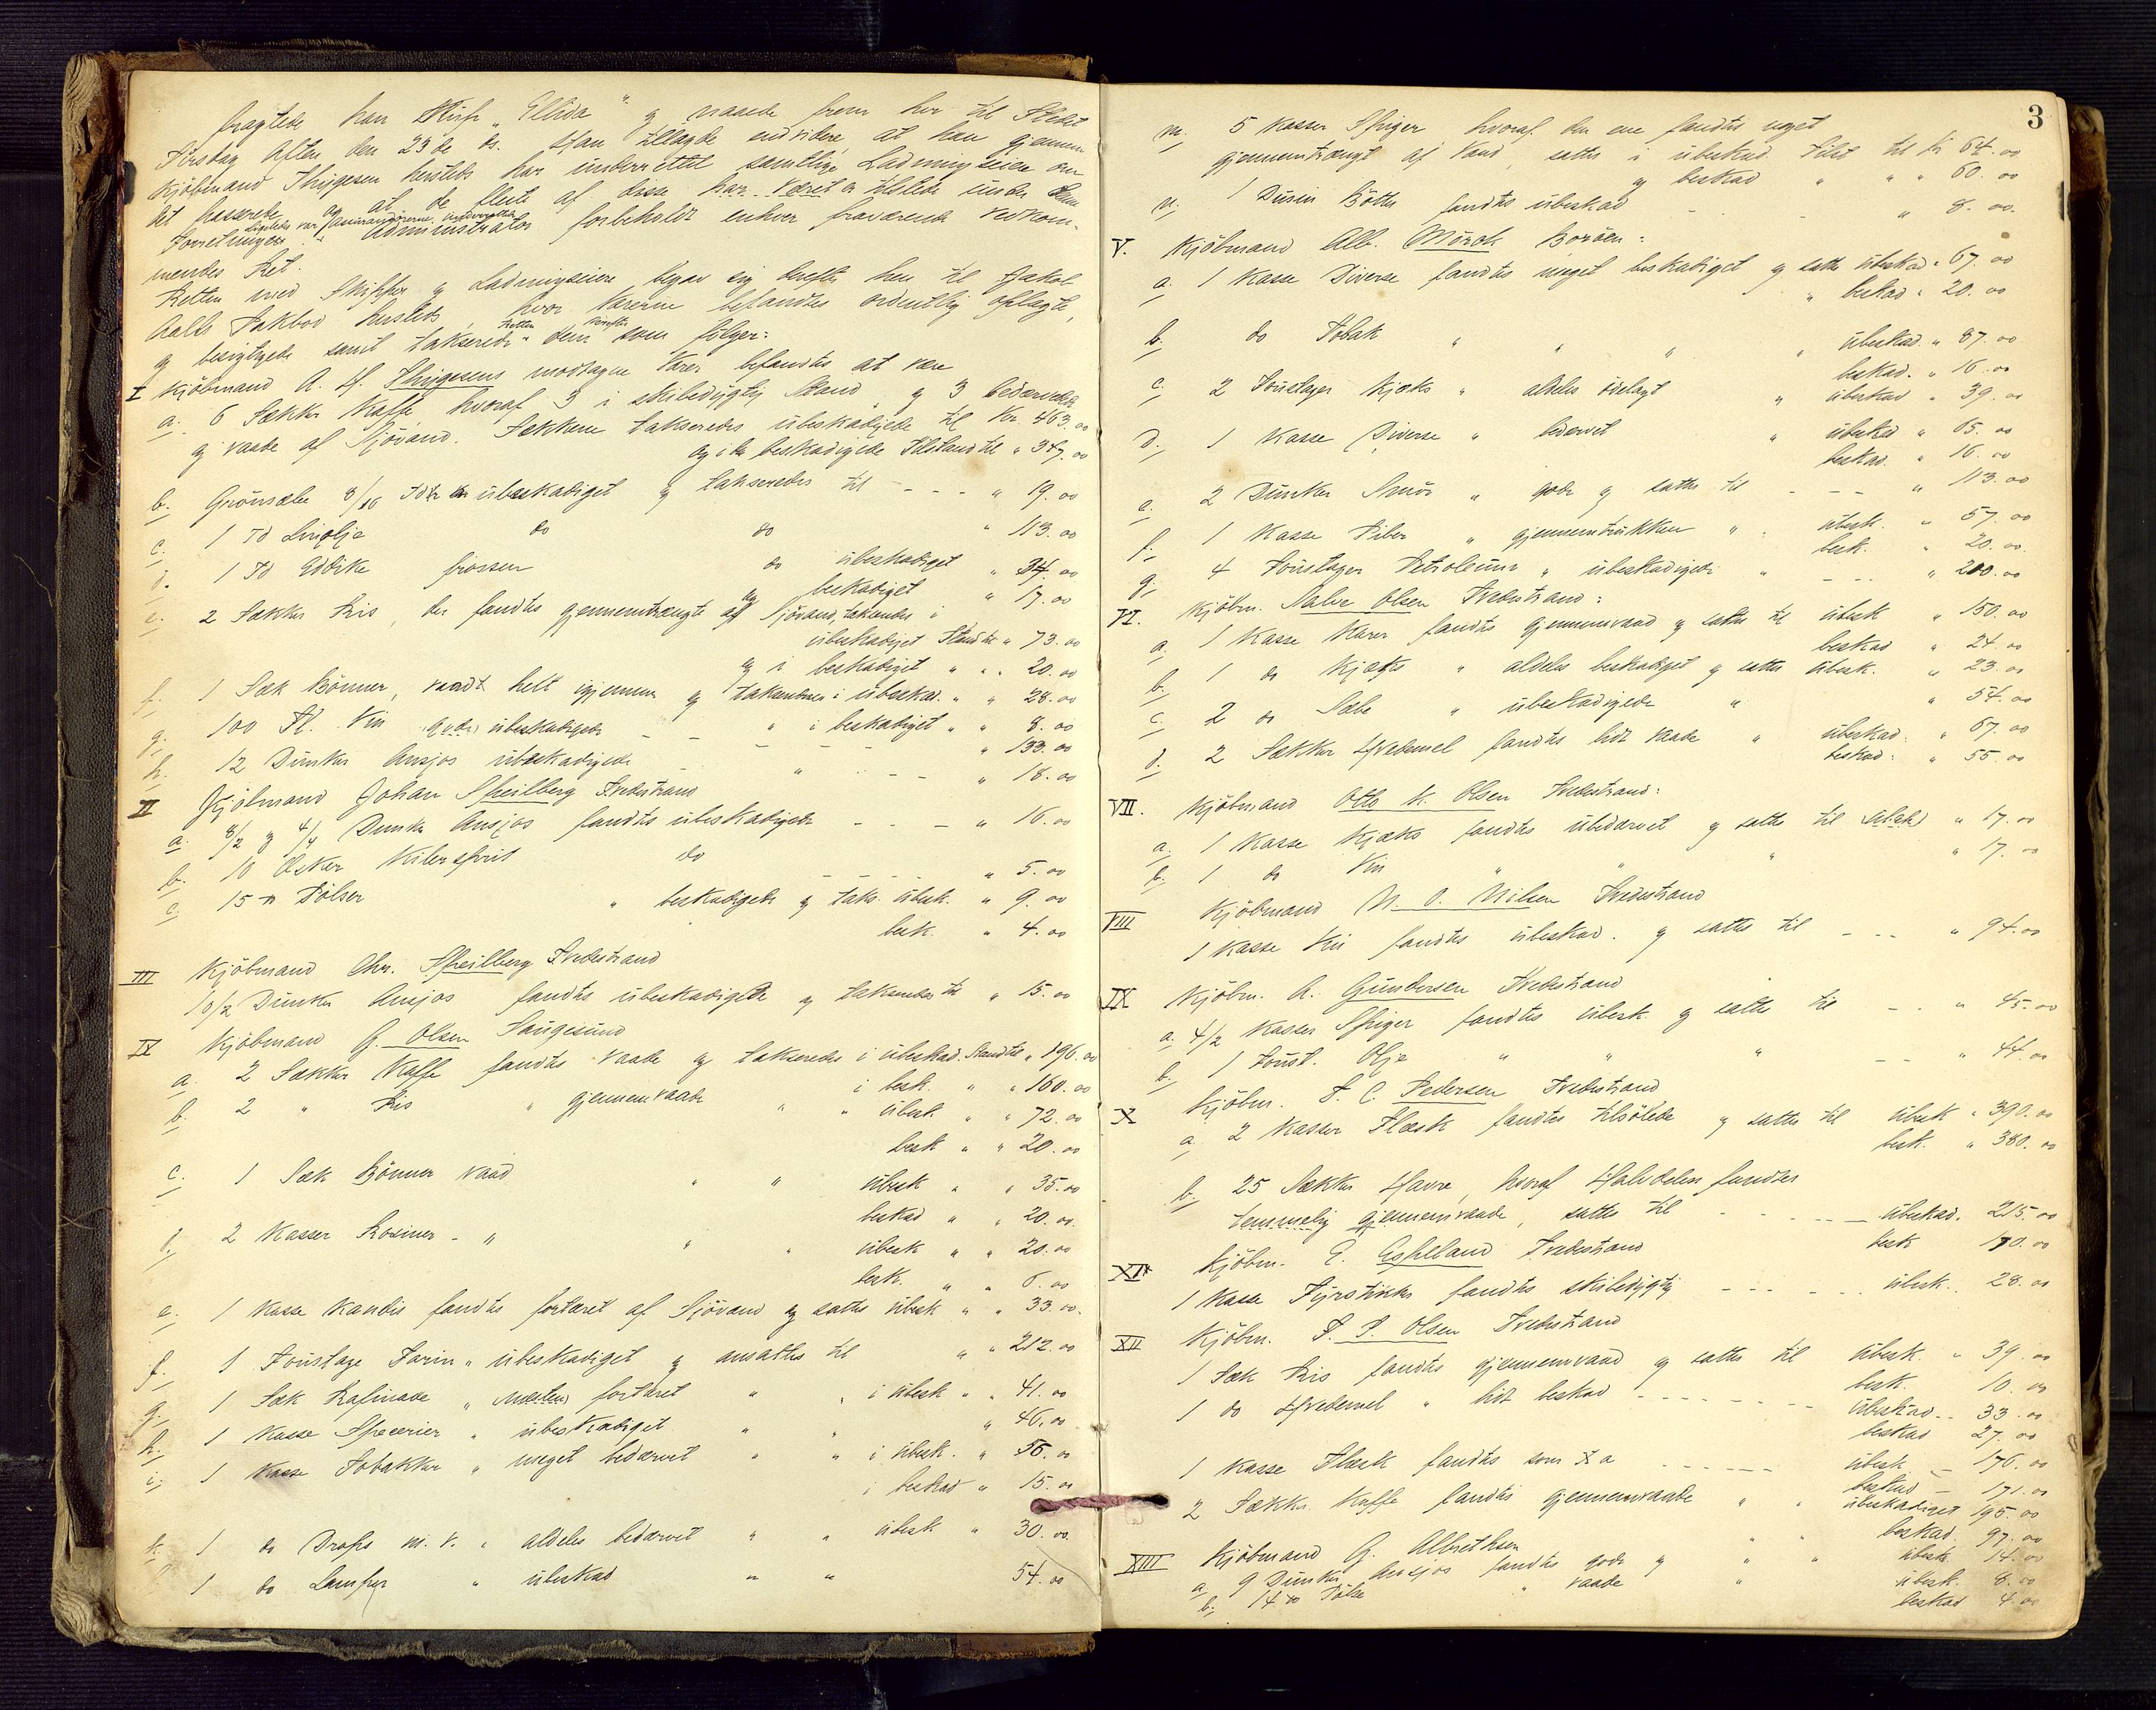 fragtede han Skib "Ellida" og naaede frem her til Stedet
Tirsdag Aften den 23de ds. Han tillagde endvidere, at han gjennem
Kjöbmand Thygesen hersteds har underrettet samtlige Ladningseiere om
det passerede og at de fleste af disse har været tilstede under denne
Forretningen. Ligeledes var Assurandörerne underrettede. Administrator forbeholdt enhver fraværende Vedkom-
mendes Ret.
Retten med Skipper og Ladningseiere begav sig derefter hen til Jakob
Aalls Pakbod hersteds, hvor Varerne befandtes ordentlig oplagte,
og besigtigede samt takserede Retten derefter dem som fölger:
I Kjöbmand A. H. Thygesens modtagne Varer befandtes at være
a. 6 Sækker Kaffe, hvoraf 3 i skibsdygtig Stand og 3 bedærvede
og vaade af Sjövand. Sækkene takseredes übeskadigede til Kr. 463.00
og i den beskadigede Tilstand til " 347.00
b. Grönsæbe 8/16 Td übeskadiget og takseredes til - - - " 19.00
c. 1 Td Linolje do do " 113.00
d. 1 Td Eddike frossen do übeskadiget " 34.00
og beskadiget " 17.00
e. 2 Sækker Ris, der fandtes gjennemtrængte af Sjövand, taksertes i
übeskadiget Stand til " 73.00
og i beskadiget " " 20.00
f. 1 Sæk Bönner, vaadt helt igjennem og taksertes i übeskad. " " 28.00
" i beskadiget " " 8.00
g. 100 Fl. Vin gode übeskadigede - - - - " 133.00
h. 12 Dunker Ansjos übeskadigede - " - - " 18.00
II Kjöbmand Johan Speilberg Tvedestrand
a. 8/2 og 4/4 Dunke Ansjos fandtes übeskadigede - - - " 16.00
b. 10 Æsker Kilersprit do - - - - " 5.00
c. 15 tt Pölser " beskadigede og taks. übesk. " 9.00
besk. " 4.00
III Kjöbmand Chr. Speilberg Tvedestrand
10/2 Dunker Ansjos fandtes übeskadigede og taksertes til " 15.00
IV Kjöbmand G. Olsen Saugesund
a. 2 Sækker Kaffe fandtes vaade og takseredes i übeskad. Stand til " 196.00
i besk. " " 160.00
b. 2 " Ris " gjennemvaade " " übesk. " " 72.00
besk " " 20.00
c. 1 Sæk Bönner vaad " " übesk " " 35.00
beskad " " 20.00
d. 2 Kasser Rosiner - " " " übesk " " 20.00
besk. " " 6.00
e. 1 Kasse Kandis fandtes fortæret af Sjövand og sattes übesk " " 33.00
f. 1 Foustage Farin " übeskadiget og ansattes til " " 212.00
g. 1 Sæk Rafinade " næsten fortæret " " i übesk " " 41.00
h. 1 Kasse Specerier " übeskadiget " " " 46.00
i. 1 Kasse Tobakker " meget bedærvet " " i übesk. " 56.00
i beskad " 15.00
k. 1 do Drops m.v. " aldeles bedærvet " " übesk " 30.00
l. 1 do Lamper " übeskad " " 54.00
3
m. 5 Kasser Spiger hvoraf den ene fandtes noget
gjennemtrængt af Vand, sattes i übeskad. Tilst til Kr 64.00
og beskad " " " 60.00
n. 1 Dusin Bötter fandtes übeskad - - - " 8.00
V. Kjöbmand Alb. Mörch Boröen:
a. 1 Kasse Diverse fandtes meget beskadiget og sattes übeskad. " 67.00
" beskad " 20.00
b. do Tobak " " " " übeskad. " 87.00
beskad. " 16.00
c. 2 Foustager Kjæks " aldeles ödelagt " übeskad " 39.00
d. 1 Kasse Diverse " bedærvet " übeskad " 65.00
beskad. " 16.00
e. 2 Dunker Smör " gode og sattes til - - - " 113.00
f. 1 Kasse Piber " gjennemtrukken " - übesk. " 57.00
besk. " 20.00
g. 4 Foustager Petroleum " übeskadigede " - - - " 200.00
VI. Kjöbm. Salve Olsen Tvedestrand:
a. 1 Kasse Varer fandtes gjennemvaad og sattes til übesk " 150.00
beskad " 24.00
b. 1 do Kjæks " aldeles beskadiget og sattes übesk. " 23.00
c. 2 do Sæbe " übeskadigede " " 54.00
d. 2 Sækker Hvedemel fandtes lidt vaade " übeskad. " 67.00
beskad. " 55.00
VII. Kjöbmand Otto K. Olsen Tvedestrand:
a. 1 Kasse Kjæks fandtes übedærvet og sattes til " 17.00
b. 1 do Vin " " " " 17.00
VIII Kjöbmand N. O. Nilsen Tvedestrand
1 Kasse Vin fandtes übeskad. og sattes til - - - " 94.00
IX Kjöbm. A. Gundersen Tvedestrand
a. 4/2 Kasser Spiger fandtes übesk. og sattes til - - " 45.00
b. 1 Foust. Olje " " " - - " 44.00
X Kjöbm. F. C. Pedersen Tvedestrand
a. 2 Kasser Flæsk fandtes tilsölede og sattes til übesk " 390.00
besk. " 380.00
b. 25 Sækker Havre, hvoraf Halvdelen fandtes
temmelig gjennemvaade, sattes til - - - - - übeskad. 215.00
besk 170.00
XI Kjöbm. E. Espeland Tvedestrand
1 Kasse Fyrstikker fandtes skibsdygtig - - - - - übesk. 28.00
XII Kjöbm. P. P. Olsen Tvedestrand
1 Sæk Ris fandtes gjennemvaad og sattes til übesk. " 39.00
besk. 10.00
1 do Hvedemel " lidt beskad - - - - - - übeskad - 33.00
beskad 27.00
1 Kasse Flæsk fandtes som X a - - - - - - übesk - 176.00
beskad - 171.00
2 Sækker Kaffe fandtes gjennemvaade " " übeskadiget 195.00
beskad. 97.00
XIII Kjöbmand G. Albrethsen
a. 9 Dunker Ansjos fandtes gode og " " übesk 14.00
b. 14 tt Pölse " vaade " übesk. 8.00
beskad 4.00